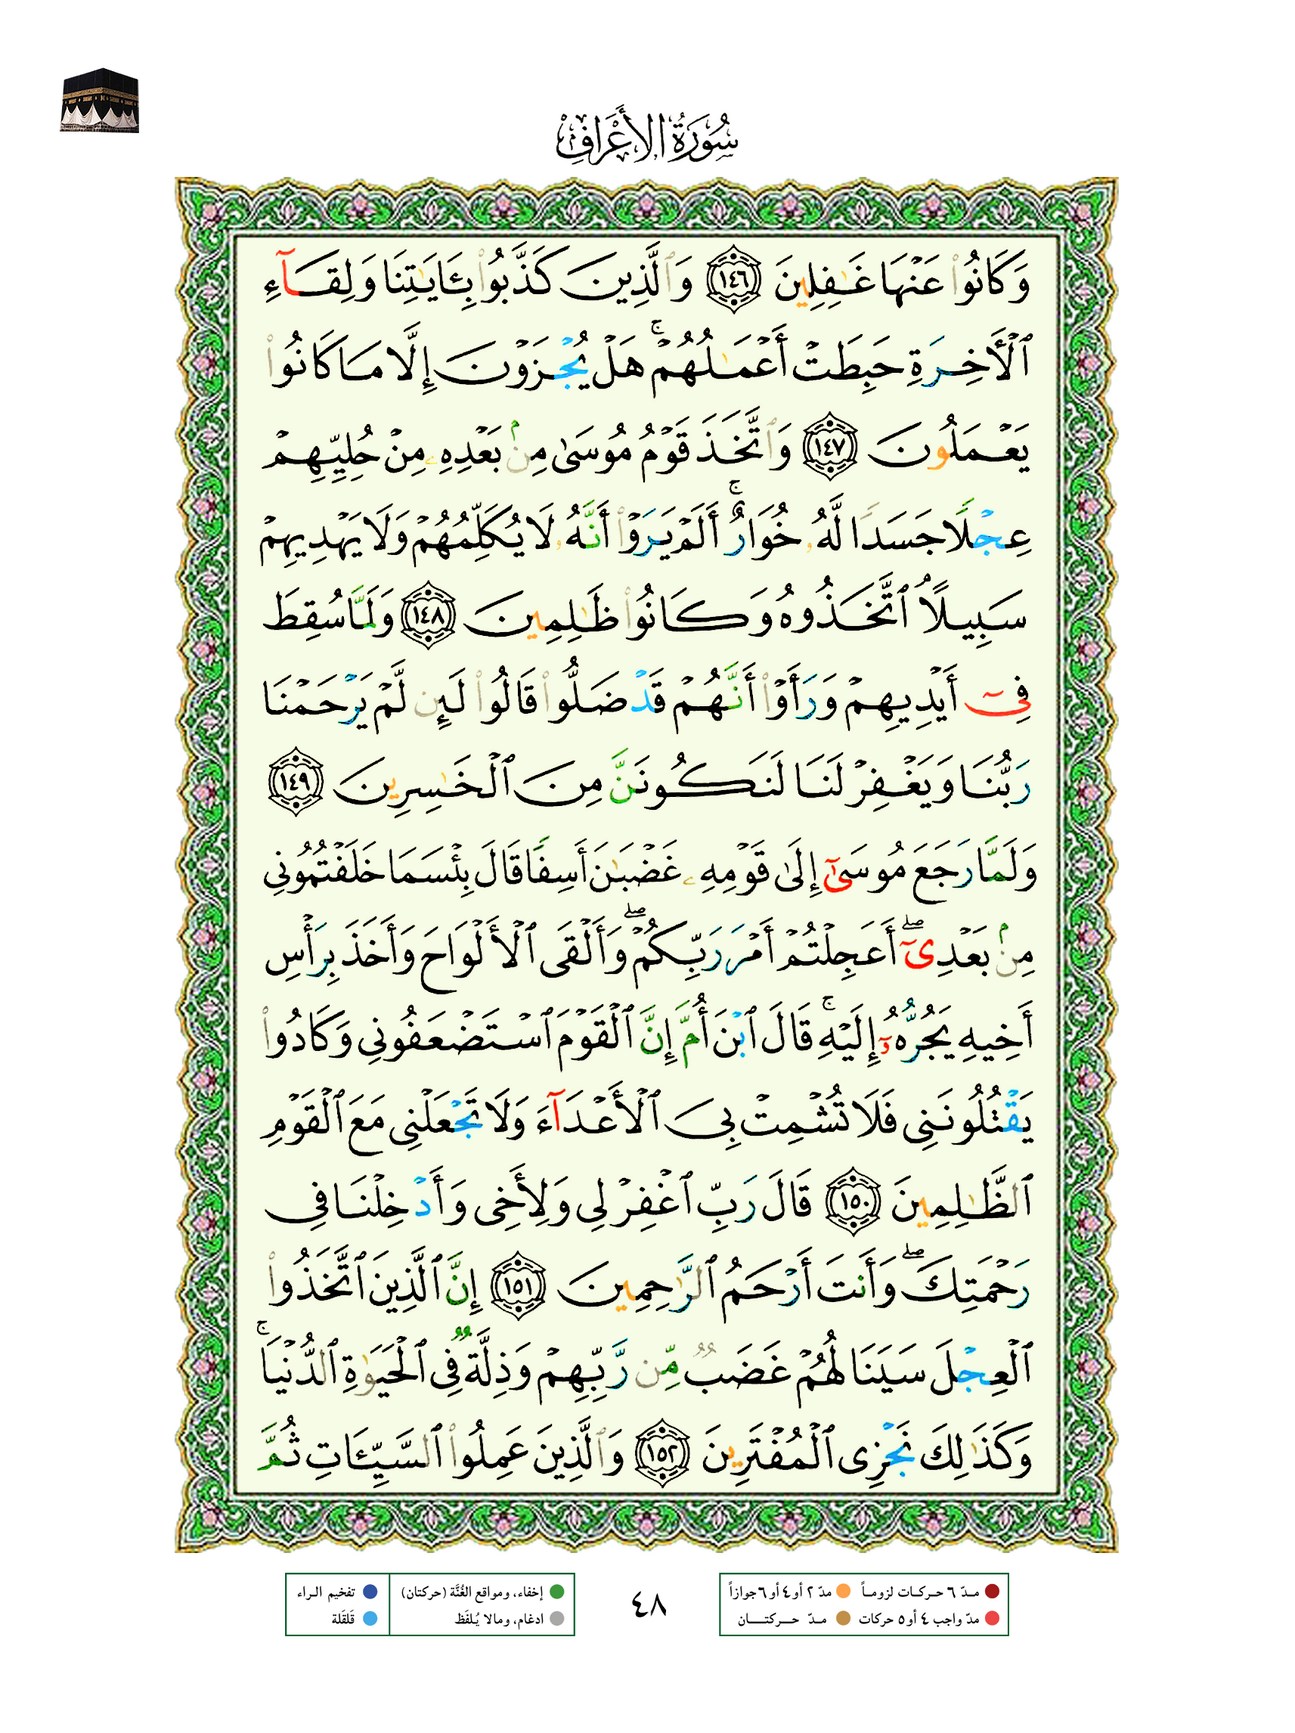 سُورَةُ الأَعْرَافِ
وَكَانُوا۟ عَنْهَا غَـٰفِلِينَ ١٤٦ وَٱلَّذِينَ كَذَّبُوا۟ بِـَٔايَـٰتِنَا وَلِقَآءِ
ٱلْأَخِرَةِ حَبِطَتْ أَعْمَـٰلُهُمْ ۚ هَلْ يُجْزَوْنَ إِلَّا مَا كَانُوا۟
يَعْمَلُونَ ١٤٧ وَٱتَّخَذَ قَوْمُ مُوسَىٰ مِنۢ بَعْدِهِۦ مِنْ حُلِيِّهِمْ
عِجْلًا جَسَدًا لَّهُۥ خُوَارٌ ۚ أَلَمْ يَرَوْا۟ أَنَّهُۥ لَا يُكَلِّمُهُمْ وَلَا يَهْدِيهِمْ
سَبِيلًا ٱتَّخَذُوهُ وَكَانُوا۟ ظَـٰلِمِينَ ١٤٨ وَلَمَّا سُقِطَ
فِىٓ أَيْدِيهِمْ وَرَأَوْا۟ أَنَّهُمْ قَدْ ضَلُّوا۟ قَالُوا۟ لَئِن لَّمْ يَرْحَمْنَا
رَبُّنَا وَيَغْفِرْ لَنَا لَنَكُونَنَّ مِنَ ٱلْخَـٰسِرِينَ ١٤٩
وَلَمَّا رَجَعَ مُوسَىٰٓ إِلَىٰ قَوْمِهِۦ غَضْبَـٰنَ أَسِفًا قَالَ بِئْسَمَا خَلَفْتُمُونِى
مِنۢ بَعْدِىٓ ۖ أَعَجِلْتُمْ أَمْرَ رَبِّكُمْ ۖ وَأَلْقَى ٱلْأَلْوَاحَ وَأَخَذَ بِرَأْسِ
أَخِيهِ يَجُرُّهُۥٓ إِلَيْهِ ۚ قَالَ ٱبْنَ أُمَّ إِنَّ ٱلْقَوْمَ ٱسْتَضْعَفُونِى وَكَادُوا۟
يَقْتُلُونَنِى فَلَا تُشْمِتْ بِىَ ٱلْأَعْدَآءَ وَلَا تَجْعَلْنِى مَعَ ٱلْقَوْمِ
ٱلظَّـٰلِمِينَ ١٥٠ قَالَ رَبِّ ٱغْفِرْ لِى وَلِأَخِى وَأَدْخِلْنَا فِى
رَحْمَتِكَ ۖ وَأَنتَ أَرْحَمُ ٱلرَّٰحِمِينَ ١٥١ إِنَّ ٱلَّذِينَ ٱتَّخَذُوا۟
ٱلْعِجْلَ سَيَنَالُهُمْ غَضَبٌ مِّن رَّبِّهِمْ وَذِلَّةٌ فِى ٱلْحَيَوٰةِ ٱلدُّنْيَا ۚ
وَكَذَٰلِكَ نَجْزِى ٱلْمُفْتَرِينَ ١٥٢ وَٱلَّذِينَ عَمِلُوا۟ ٱلسَّيِّـَٔاتِ ثُمَّ
مـدّ ٦ حركـات لزومـاً
مدّ ٢ أو ٤ أو ٦ جوازاً
مدّ واجب ٤ أو ٥ حركات
مـدّ حــركتــان
٤٨
إخفاء، ومواقع الغُنَّة (حركتان)
تفخيم الراء
ادغام، ومالا يُـلفَظ
قَلقَلة